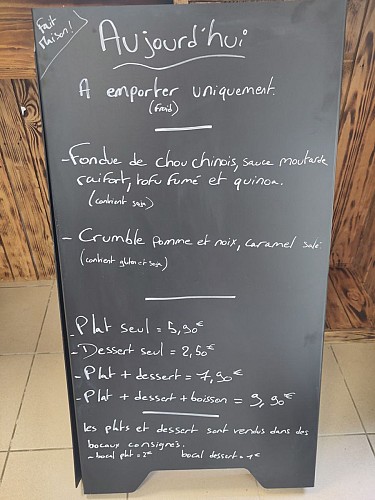 Fait
Maison!
Aujourd'hui
A emporter uniquement.
(froid)
-Fondue de chou chinois, sauce moutarde
raifort, tofu fumé et quinoa.
(contient soja)
- Crumble pomme et noix, caramel salé
(contient gluten et soja)
-Plat seul = 5,90€
-Dessert seul = 2,50€
-Plat + dessert = 7,90€
-Plat + dessert + boisson = 9,90€
les plats et dessert sont vendus dans des
bocaux consignés.
-bocal plat = 2€ bocal dessert = 1€